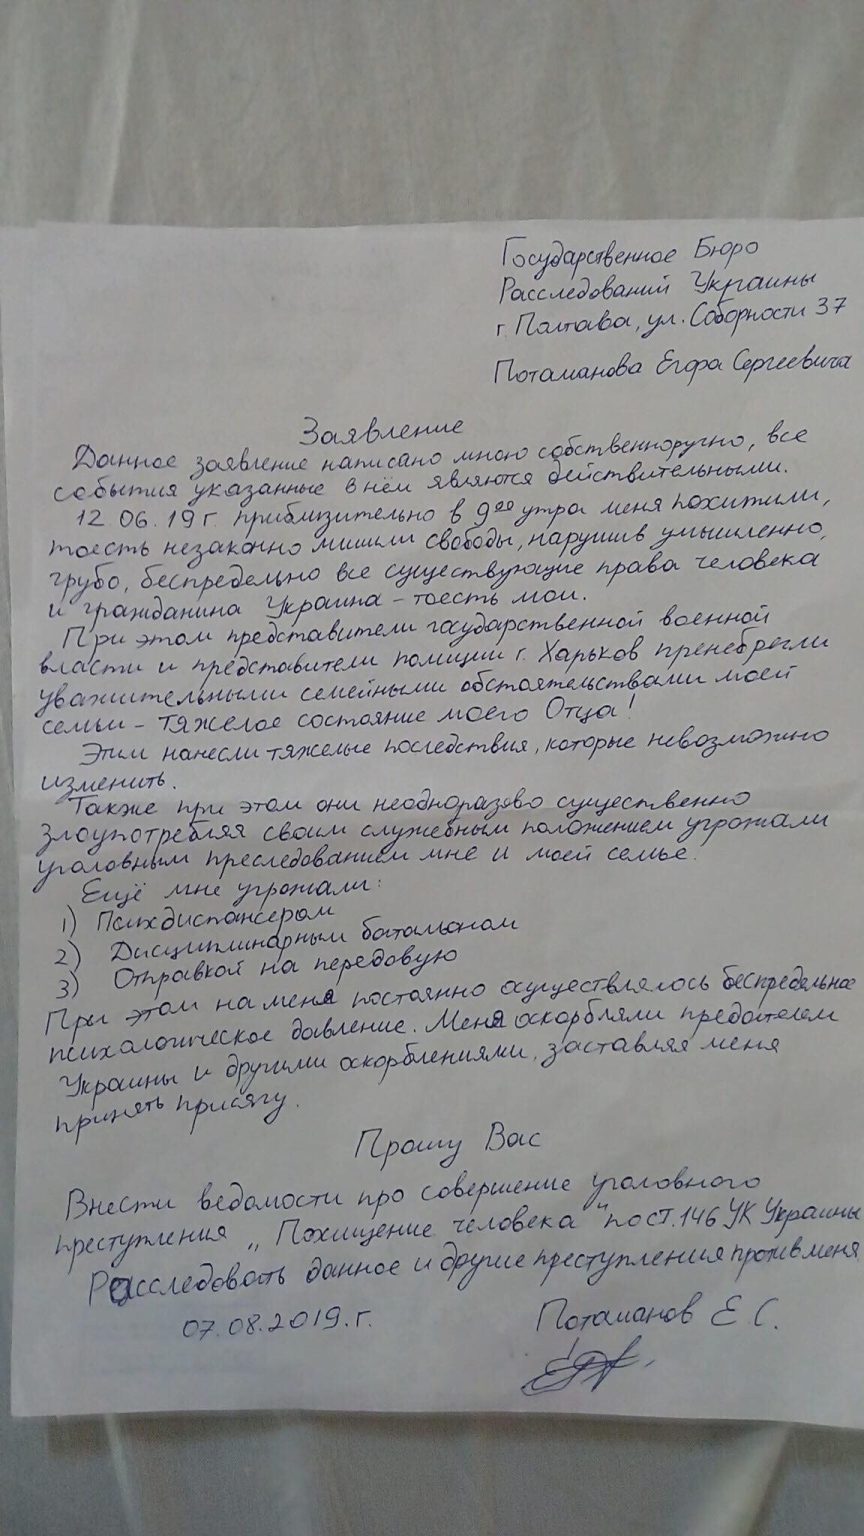 Государственное Бюро
Расследований Украины
г. Полтава, ул. Соборности 37
Потаманова Егора Сергеевича
Заявление
Данное заявление написано мною собственноручно, все
события указанные в нём являются действительными.
12.06.19 г. приблизительно в 9 00 утра меня похитили,
тоесть незаконно лишили свободы, нарушив умышленно,
грубо, беспредельно все существующие права человека
и гражданина Украина - тоесть мои.
При этом представители государственной военной
власти и представители полиции г. Харьков пренебрегли
уважительными семейными обстоятельствами моей
семьи - тяжелое состояние моего Отца!
Этим нанесли тяжелые последствия, которые невозможно
изменить.
Также при этом они неодноразово существенно
злоупотребляя своим служебным положением угрожали
уголовным преследованием мне и моей семье.
Ещё мне угрожали:
1) Психдиспансером
2) Дисциплинарным батальоном
3) Отправкой на передовую
При этом на меня постоянно осуществлялось беспредельное
психологическое давление. Меня оскорбляли предателем
Украины и другими оскорблениями, заставляя меня
принять присягу.
Прошу Вас
Внести ведомости про совершение уголовного
преступления „Похищение человека" по ст. 146 УК Украины
Расследовать данное и другие преступления против меня
07.08.2019.г. Потаманов Е.С.